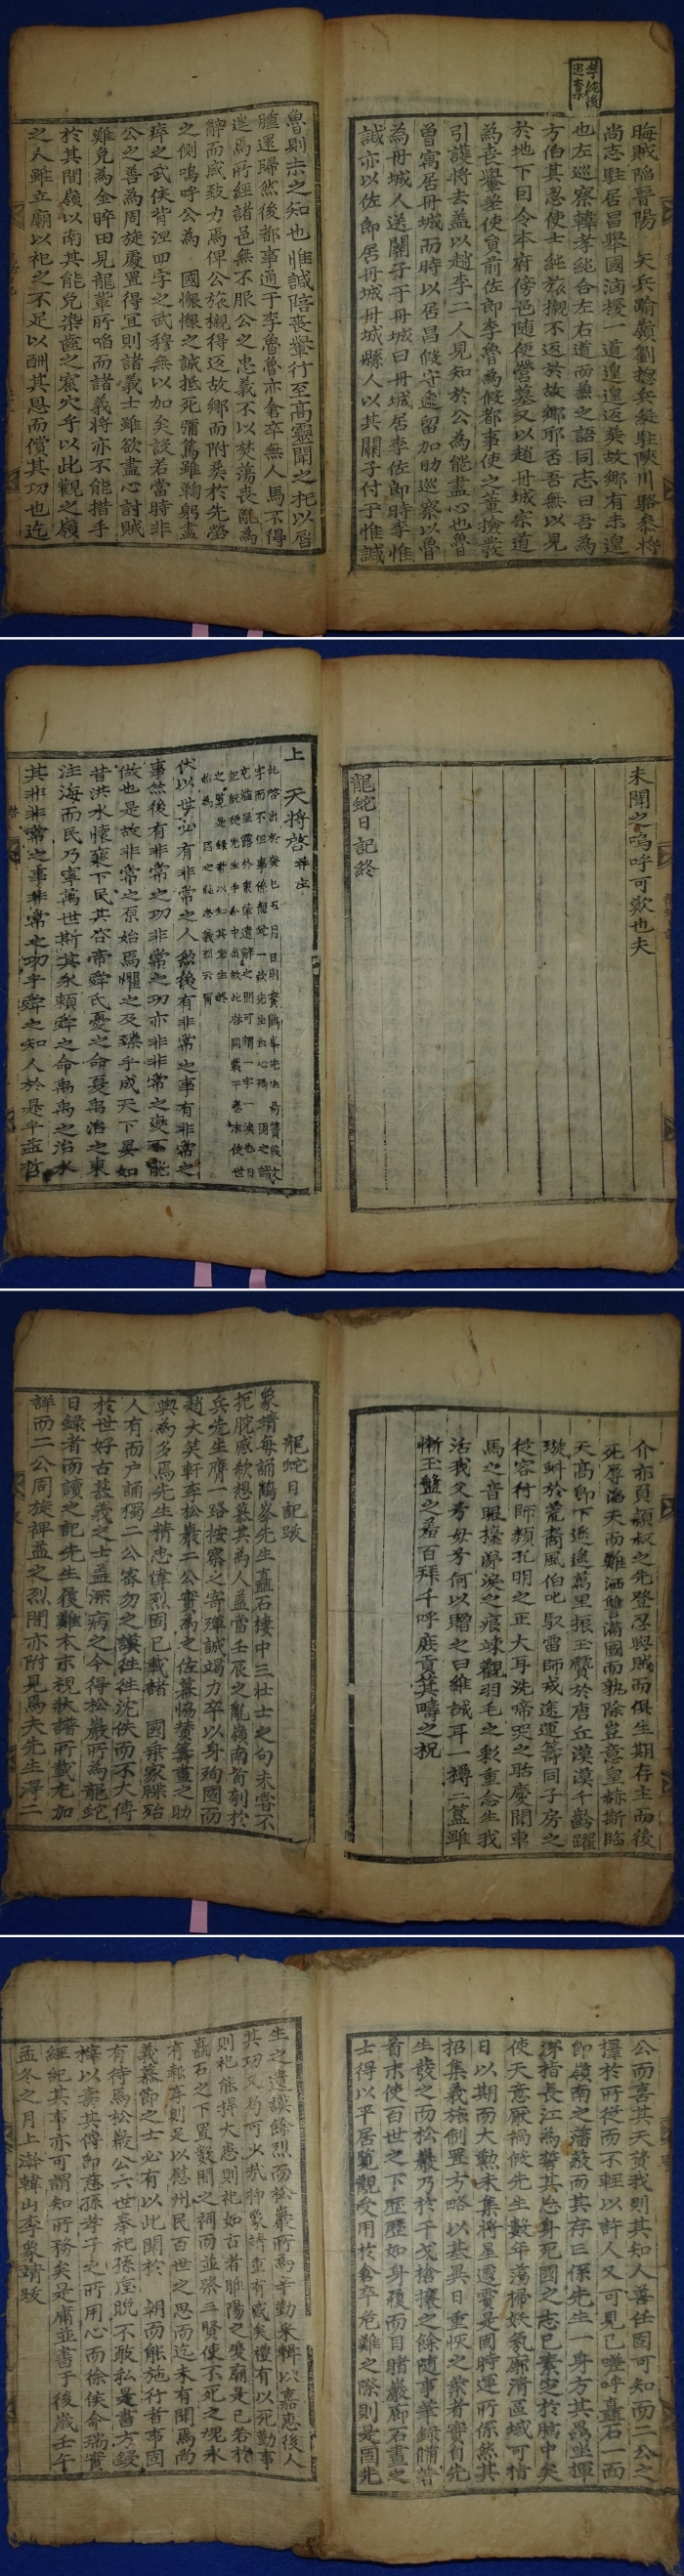 李純後
逃奔
晦賊陷晉陽 天兵踰嶺劉摠兵綎駐陜川駱參將
尚志駐居昌擧國洶擾一道遑遑返葬故鄕有未遑
也左巡察韓孝純合左右道而兼之語同志曰吾爲
方伯其忍使士純旅櫬不返於故鄕耶否吾無以見
於地下回令本府傍邑隨便營墓又以趙丹城宗道
爲丧轝差使員前佐郎李魯爲假都事使之董撿發
引護將去盖以趙李二人見知於公爲能盡心也魯
曾寓居丹城而時以居昌假守適留加助巡察以魯
爲丹城人送關子于丹城曰丹城居李佐郎時李惟
誠亦以佐郎居丹城丹城縣人以其關子付于惟諴
魯則未之知也惟諴陪丧轝行至高靈聞之托以唇
腫還歸然後都事通于李魯魯亦倉卒無人馬不得
達焉所經諸邑無不服公之忠義不以焚蕩丧亂爲
辭而咸致力焉俾公旅櫬得返故鄕而附葬於先塋
之側嗚呼公爲 國懇懇之誠抵死彌篤雖鞠躬盡
瘁之武侯背涅四字之武穆無以加矣設若當時非
公之善爲周旋處置得宜則諸義士雖欲盡心討賊
難免爲金睟田見龍輩所啗而諸義將亦不能措手
於其間嶺以南其能免染齒之窟穴乎以此觀之嶺
之人雖立廟以祀之不足以酬其恩而償其功也迄
未聞之嗚呼可歎也夫
龍蛇日記終
上 天將啓
伏以世必有非常之人然後有非常之事有非常之
事然後有非常之功非常之功亦非非常之變不能
做也是故非常之原始焉懼之及臻乎成天下晏如
昔洪水懷襄下民其咨帝舜氏憂之命夏禹治之東
注海而民乃寧萬世斯其永賴舜之命禹禹之治水
其非非常之事非常之功乎舜之知人於是乎益哲
介亦負顔叔之先登忍與賊而俱生期存主而後
死辱滔天而難洒讐滿國而孰除豈意皇赫斯臨
天高卽下逖逖萬里振玉鸞於唐丘漠漠千齡躍
璇虯於荒裔風伯叱馭雷師戒途運籌同子房之
從容行師類孔明之正大再洗啼哭之眙慶聞車
馬之音眼擡㴑淚之痕竦觀羽毛之彩重念生我
活我父兮母兮何以贈之曰維誠耳一搏二簋雖
慚玉盤之羞百拜千呼庶貢箕疇之祝
龍蛇日記跋
象靖每誦鶴峯先生矗石樓中三壯士之句未嘗不
扼腕感欷想慕其爲人盖當壬辰之亂嶺南首剡於
兵先生膺一路按察之寄殫誠竭力卒以身殉國而
趙大笑軒李松巖二公實爲之佐幕協賛籌畫之助
與爲多焉先生精忠偉烈固已載諸 國乘家牒殆
人有而户誦獨二公密勿之謨徃徃沈佚而不大傳
於世好古慕義之士盖深病之今得松巖所爲龍蛇
日録者而讀之記先生履難本末視狀譜所載尤加
詳而二公周旋裨益之烈間亦附見焉夫先生得二
公而喜其天賛我則其知人善任固可知而二公之
擇於所從而不輕以許人又可見已嗟呼矗石一面
卽嶺南之藩蔽而其存亡係先生一身方其昜坐揮
涕指長江爲誓其忘身死國之志已素定於胸中矣
使天意厭禍假先生數年蕩掃妖氛廓清區域可指
日以期而大勳未集將星遽霣是固時運所係然其
招集義旅制置方略以基異日重恢之業者實自先
生發之而松巖乃於干戈槍攘之餘隨事筆録備著
首末使百世之下歷歷如身履而目睹巖廊石畫之
士得以平居覽觀受用於倉卒危難之際則是固先
生之遺謨餘烈而松巖所爲辛勤采輯以嘉惠後人
其功又曷可少哉抑象靖重有感矣禮有以死勤事
則祀能捍大患則祀如古者睢陽之雙廟是已若於
矗石之下置數間之祠而並祭三賢使不死之魂永
有報事則足以慰州民百世之思而迄未有聞焉尚
義慕節之士必有以此聞於 朝而能施行者事固
有待焉松巖公六世奉祀孫垕晩不敢私是書方鋟
梓以壽其傳卽慈孫孝子之所用心而徐侯命瑞實
經紀其事亦可謂知所務矣是庸並書于後歲壬午
孟冬之月上澣韓山李象靖跋